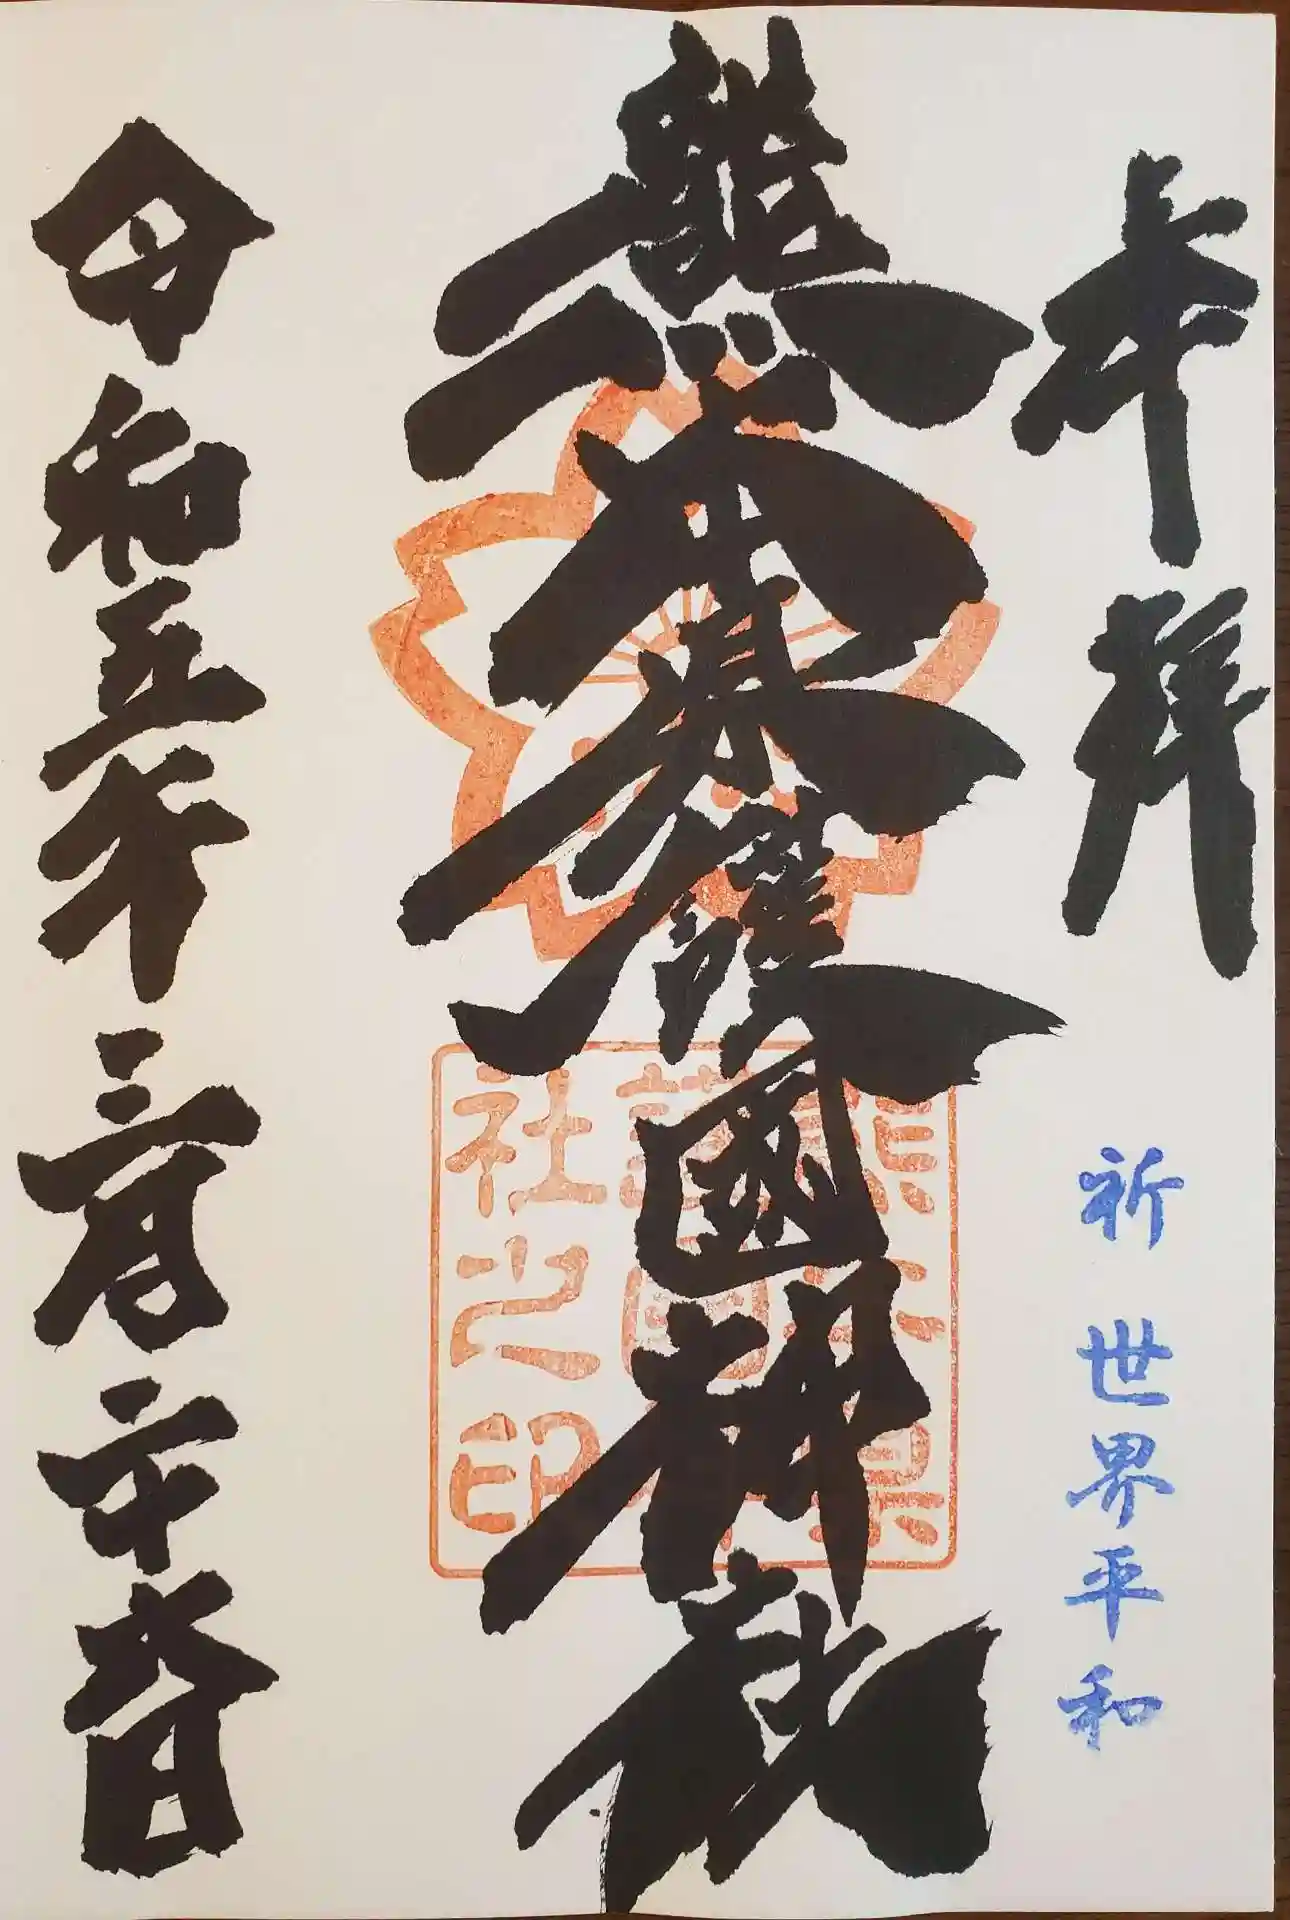 奉拝
祈 世界平和
熊本縣護國神社
熊本縣
護國神
社之印
令和五年三月二十六日